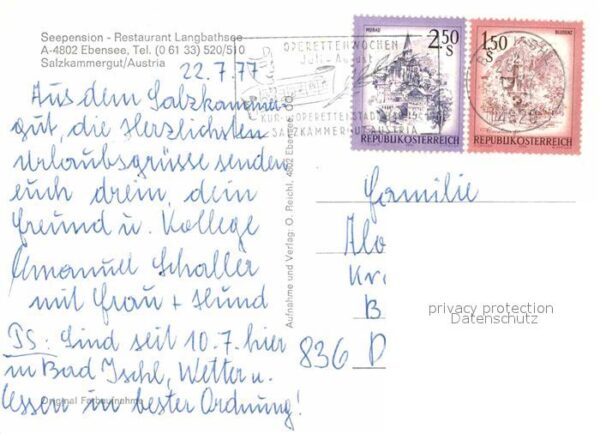 Seepension - Restaurant Langbathsee
A-4802 Ebensee, Tel. (0 61 33) 520/510
Salzkammergut/Austria
22.7.77
Aus dem Salzkammer-
gut, die Herzlichsten
Urlaubsgrüsse senden
euch drein, dein
Freund u. Kollege
Emanuel Schaller
mit Frau + Hund
PS: Sind seit 10.7. hier
in Bad Ischl, Wetter u.
Essen in bester Ordnung!
Original Farbaufnahme
Aufnahme und Verlag: O. Reichl, 4802 Ebensee, OÖ.
OPERETTENWOCHEN
Juli - August
KUR- u. OPERETTENSTADT
SALZKAMMERGUT AUSTRIA
MURAU
2.50
S
REPUBLIK ÖSTERREICH
BLUDENZ
1.50
S
REPUBLIK ÖSTERREICH
Familie
Alo
Kr.
B
836 D
privacy protection
Datenschutz